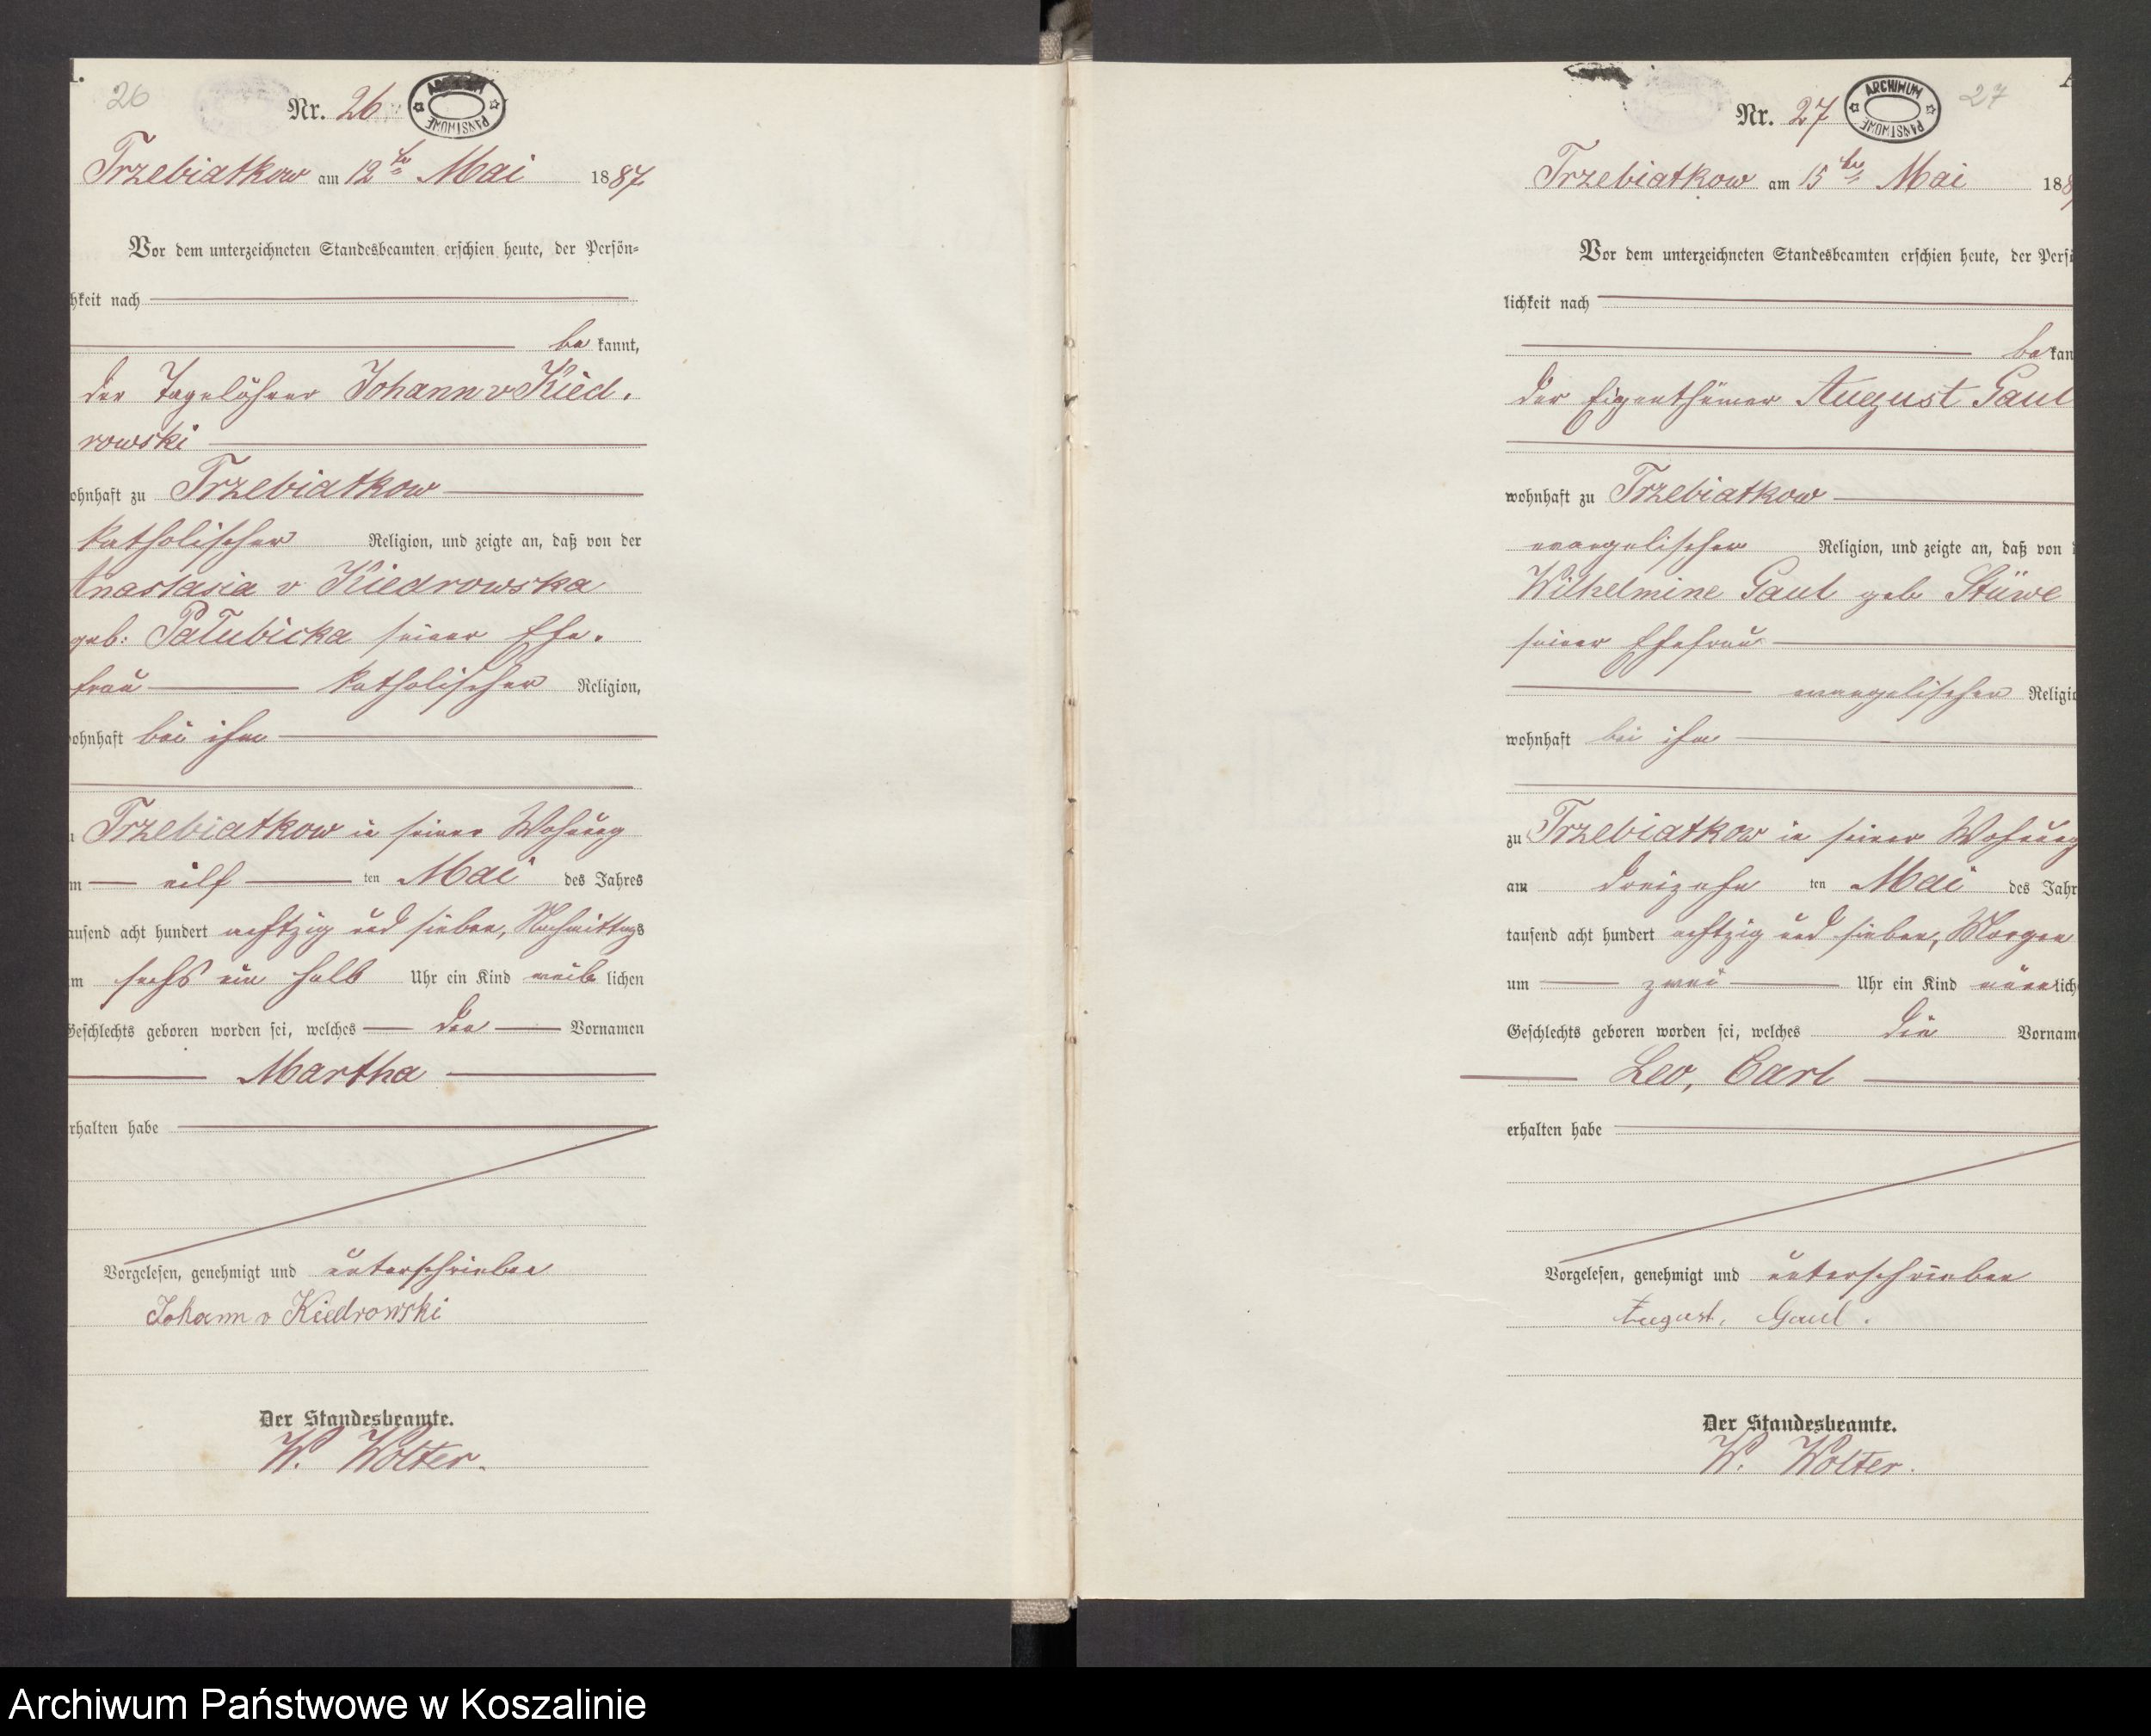 26
Nr. 26
ARCHIWUM PAŃSTWOWE
Trzebiatkow am 12ten Mai 1887.
Vor dem unterzeichneten Standesbeamten erschien heute, der Persön=
hkeit nach
be kannt,
der Tagelöhner Johann v Kied.
rowski
ohnhaft zu Trzebiatkow
katholischer Religion, und zeigte an, daß von der
Anastasia v Kiedrowska
geb: Pałubicka seiner Ehe.
frau katholischer Religion,
ohnhaft bei ihm
Trzebiatkow in seiner Wohnung
m eilf ten Mai des Jahres
ausend acht hundert achtzig und sieben, Nachmittags
m sechs ein halb Uhr ein Kind weib lichen
Geschlechts geboren worden sei, welches den Vornamen
Martha
rhalten habe
Vorgelesen, genehmigt und unterschrieben
Johann v Kiedrowski
Der Standesbeamte.
W. Wolter.
27
Nr. 27
ARCHIWUM PAŃSTWOWE
Trzebiatkow am 15ten Mai 188
Vor dem unterzeichneten Standesbeamten erschien heute, der Pers
lichkeit nach
be kan
der Eigenthümer August Gaul
wohnhaft zu Trzebiatkow
evangelischer Religion, und zeigte an, daß von
Wilhelmine Gaul geb Stüwe
seiner Ehefrau
evangelischer Religi
wohnhaft bei ihm
zu Trzebiatkow in seiner Wohnung
am dreizehn ten Mai des Jahr
tausend acht hundert achtzig und sieben, Morgen
um zwei Uhr ein Kind männ lich
Geschlechts geboren worden sei, welches die Vornam
Leo, Carl
erhalten habe
Vorgelesen, genehmigt und unterschrieben
August, Gaul.
Der Standesbeamte.
W. Wolter.
Archiwum Państwowe w Koszalinie